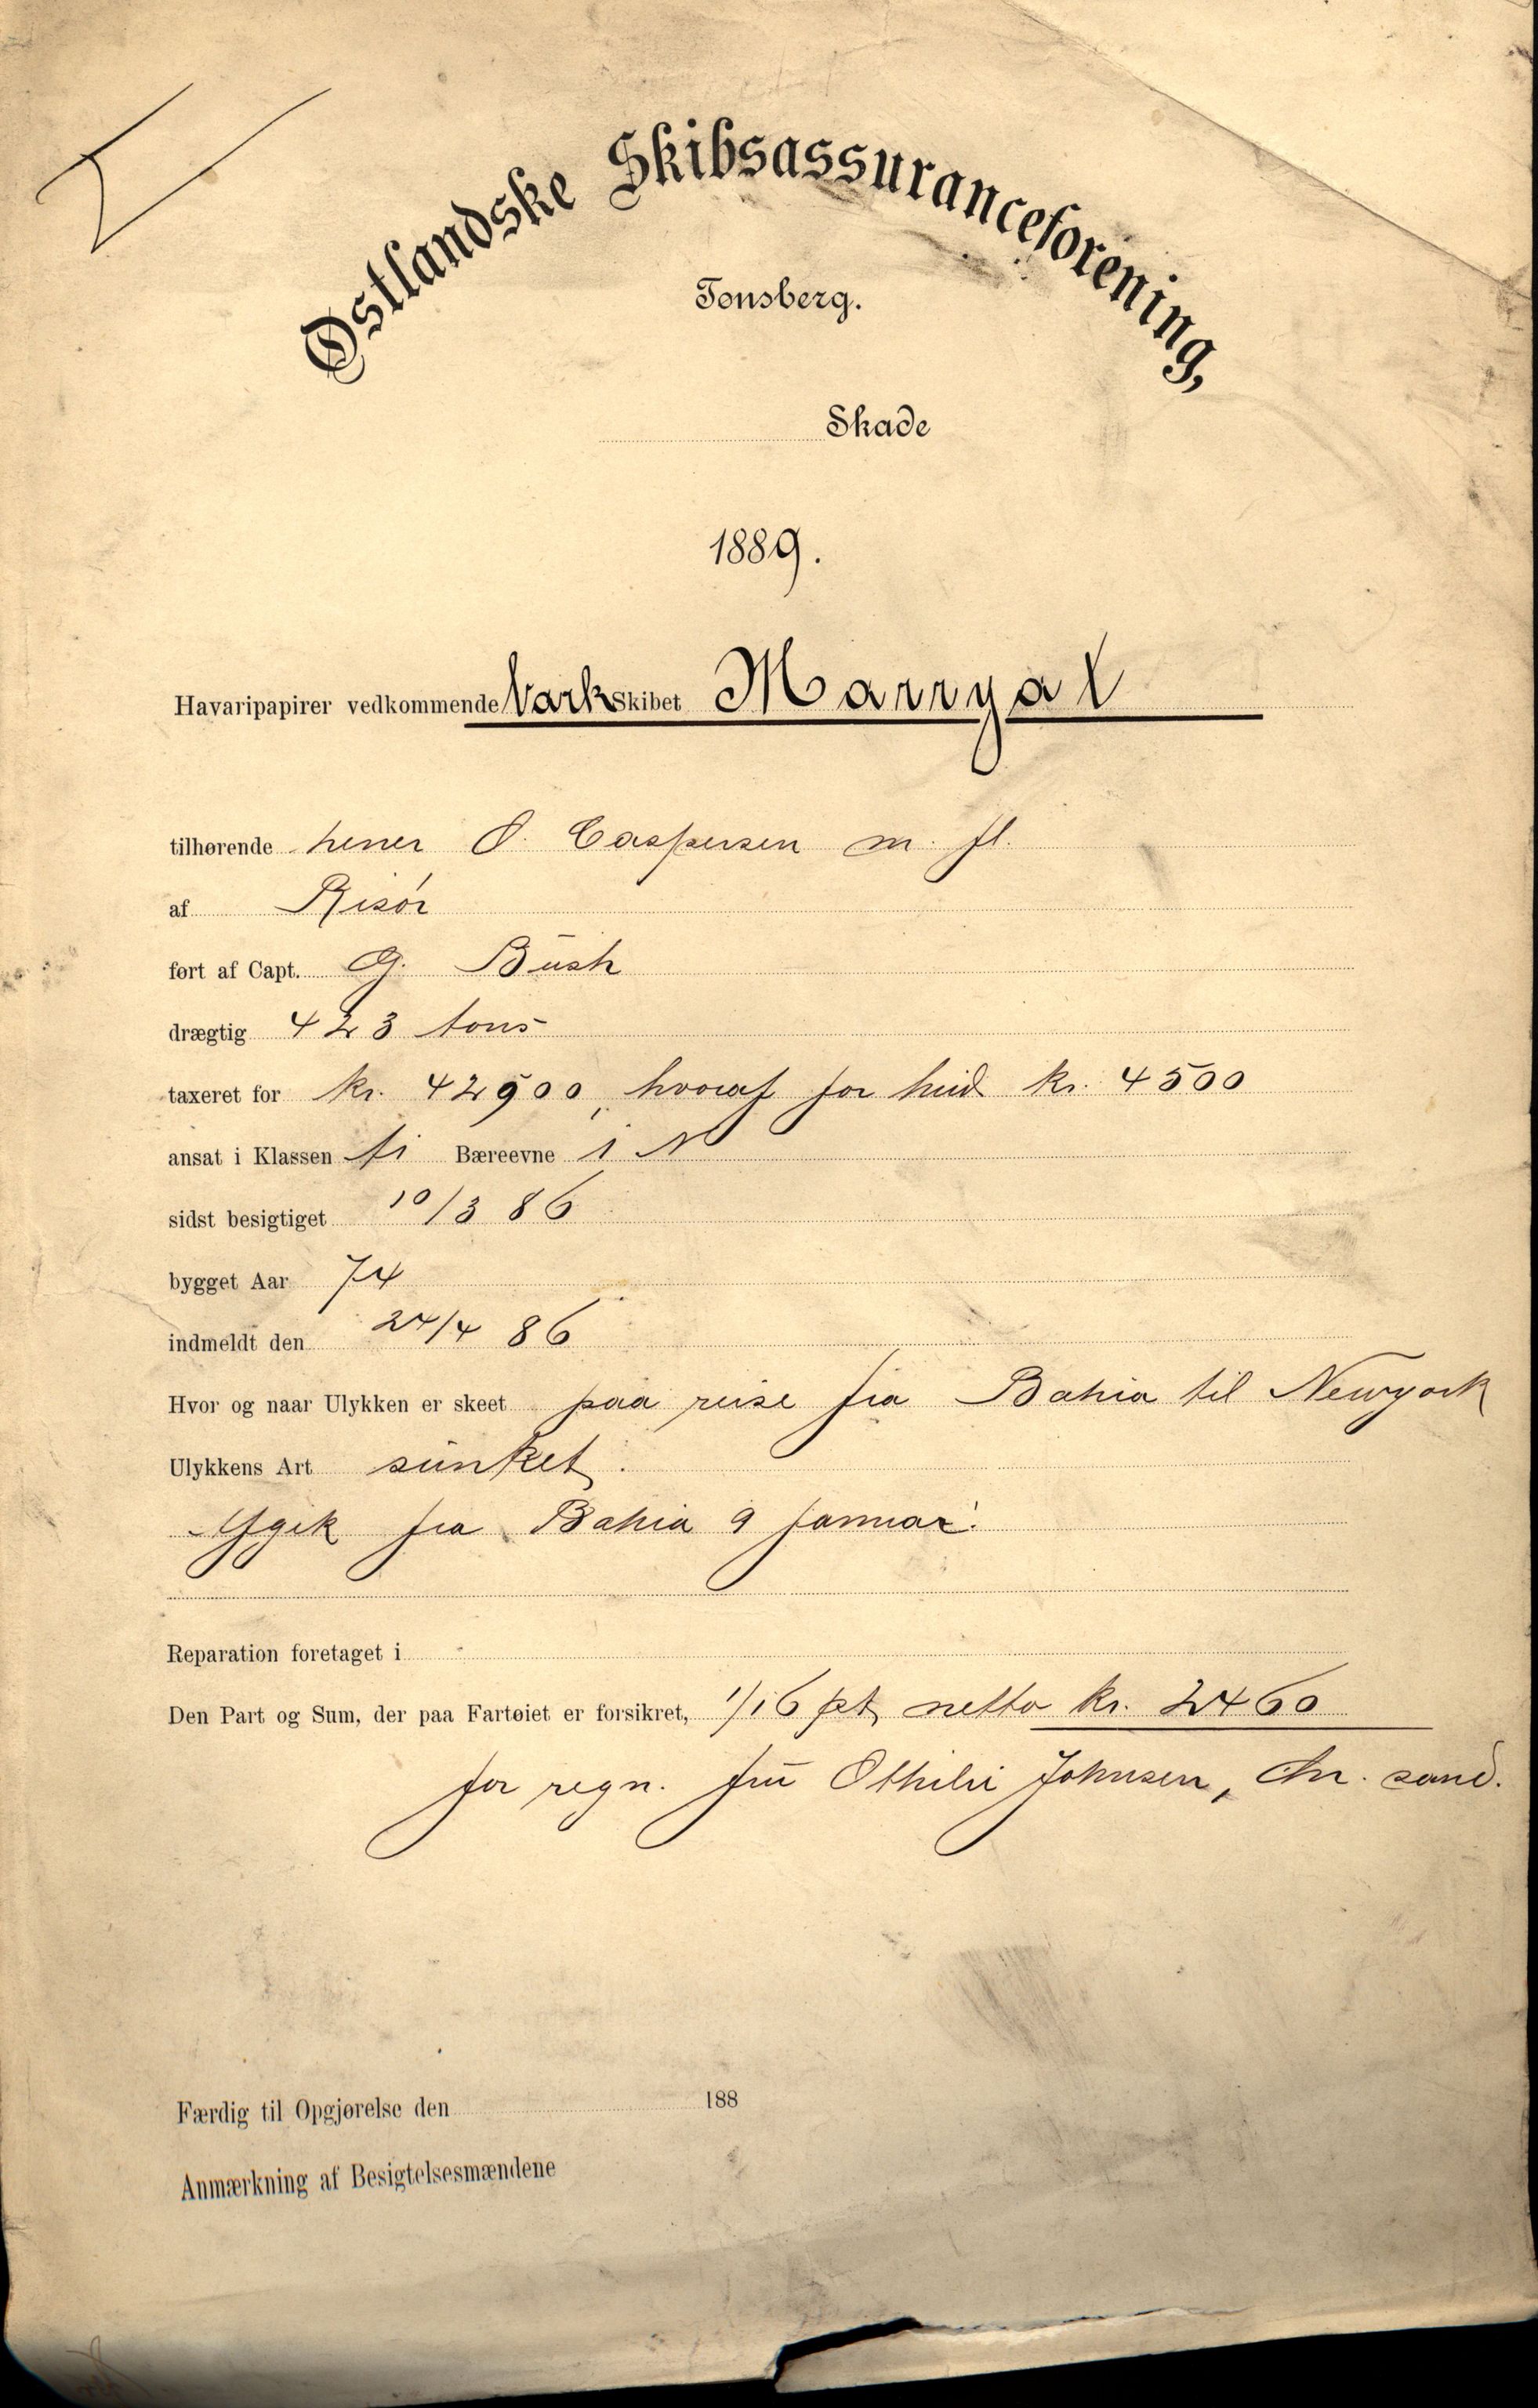 Østlandske Skibsassuranceforening,
Tønsberg.
Skade
1889.
Havaripapirer vedkommende Bark Skibet Marryat
tilhørende herrer O. Caspersen m. fl.
af Risør
ført af Capt. G. Bush
drægtig 423 tons
taxeret for kr. 42900, hvoraf for hud kr. 4500
ansat i Klassen Bæreevne 1 N
sidst besigtiget 10/3 86
bygget Aar 74
indmeldt den 24/4 86
Hvor og naar Ulykken er skeet paa reise fra Bahia til Newyork
Ulykkens Art sunket.
Afgik fra Bahia 9 januar.
Reparation foretaget i
Den Part og Sum, der paa Fartøiet er forsikret, 1/16 pt netto kr. 2460
for regn. fru Othilie Johnsen, Chr. sand.
Færdig til Opgjørelse den 188
Anmærkning af Besigtelsesmændene